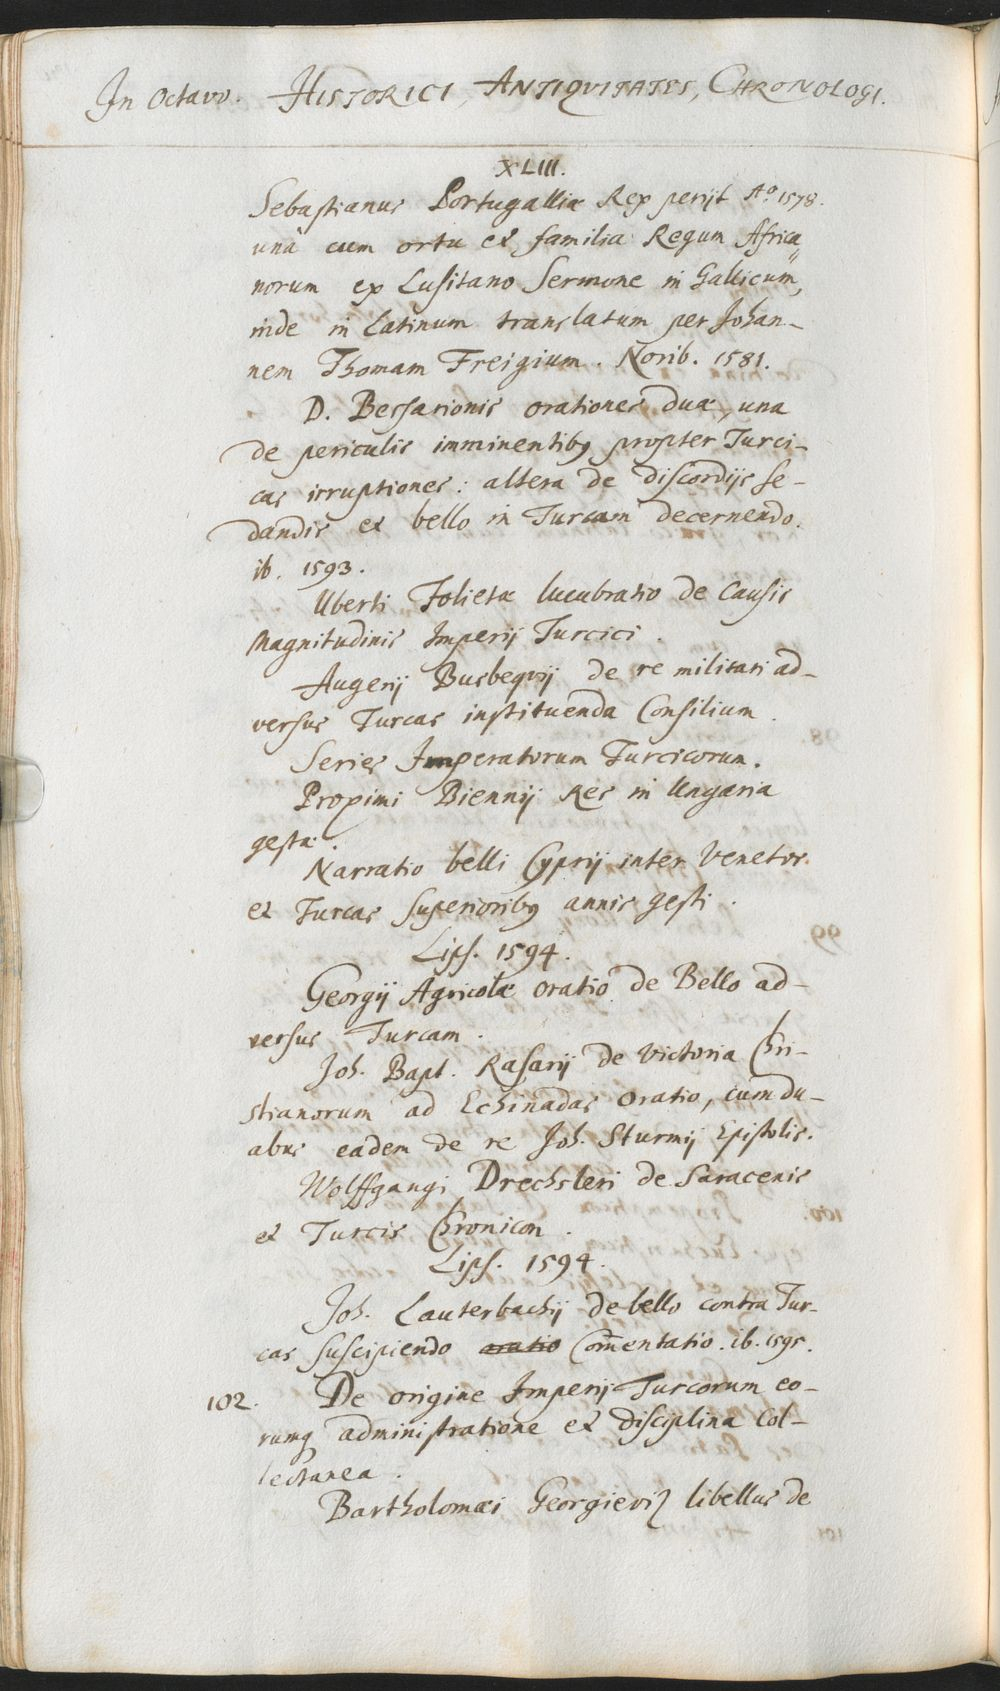 In Octavo. HISTORICI, ANTIQVITATES, CHRONOLOGI.
XLIII.
Sebastianus Portugalliæ Rex perijt Aº. 1578.
unà cum ortu et familia Regum Africa„
norum ex Lusitano Sermone in Gallicum,
inde in Latinum translatum per Johan-
nem Thomam Freigium. Norib. 1581.
D. Bessarionis orationes duæ, una
de periculis imminentibꝫ propter Turci-
cas irruptiones: altera de discordijs se-
dandis et bello in Turcam decernendo.
ib. 1593.
Uberti Folietæ lucubratio de Causis
Magnitudinis Imperij Turcici.
Augerij Busbequij de re militari ad-
versus Turcas instituenda Consilium.
Series Imperatorum Turcicorum.
Proximi Biennij Res in Ungaria
gestæ.
Narratio belli Cyprij inter Venetos
et Turcas superioribꝫ annis gesti.
Lips. 1594.
Georgij Agricolæ oratio de Bello ad-
versus Turcam.
Joh. Bapt. Rasarij de Victoria Chri-
stianorum ad Echinadas oratio, cum du-
abus eadem de re Joh. Sturmij Epistolis.
Wolffgangi Drechsleri de Saracenis
et Turcis Chronicon.
Lips. 1594.
Joh. Lauterbachij de bello contra Tur-
cas suscipiendo oratio Com̄entatio. ib. 1595.
102. De origine Imperij Turcorum eo-
rumqꝫ administratione et disciplina Col-
lectanea.
Bartholomæi Georgieviz libellus de